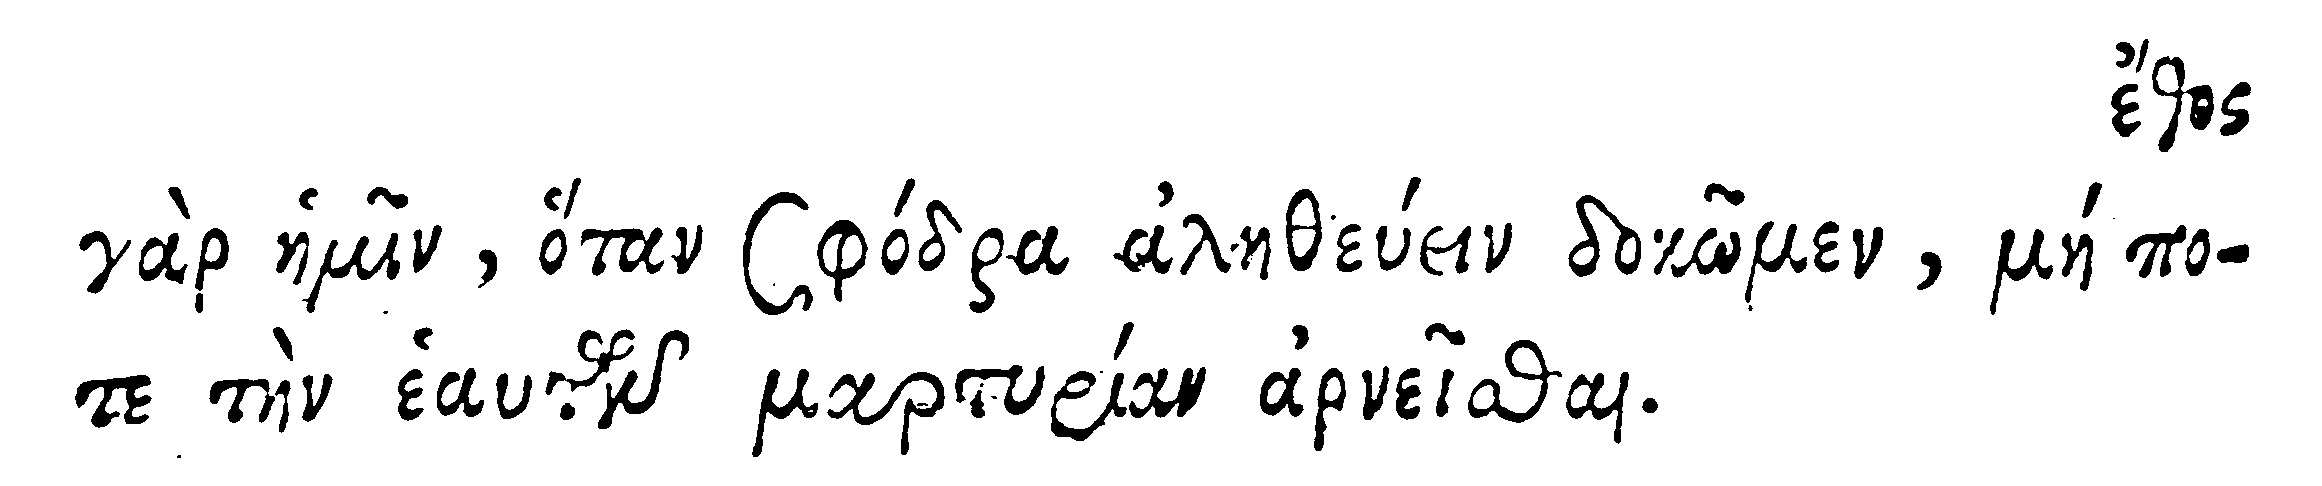 ἔθος
γὰρ ἡμῖν, ὅταν σφόδρα ἀληθεύειν δοκῶμεν, μή πο-
τε τὴν ἑαυτῶν μαρτυρίαν ἀρνεῖσθαι.